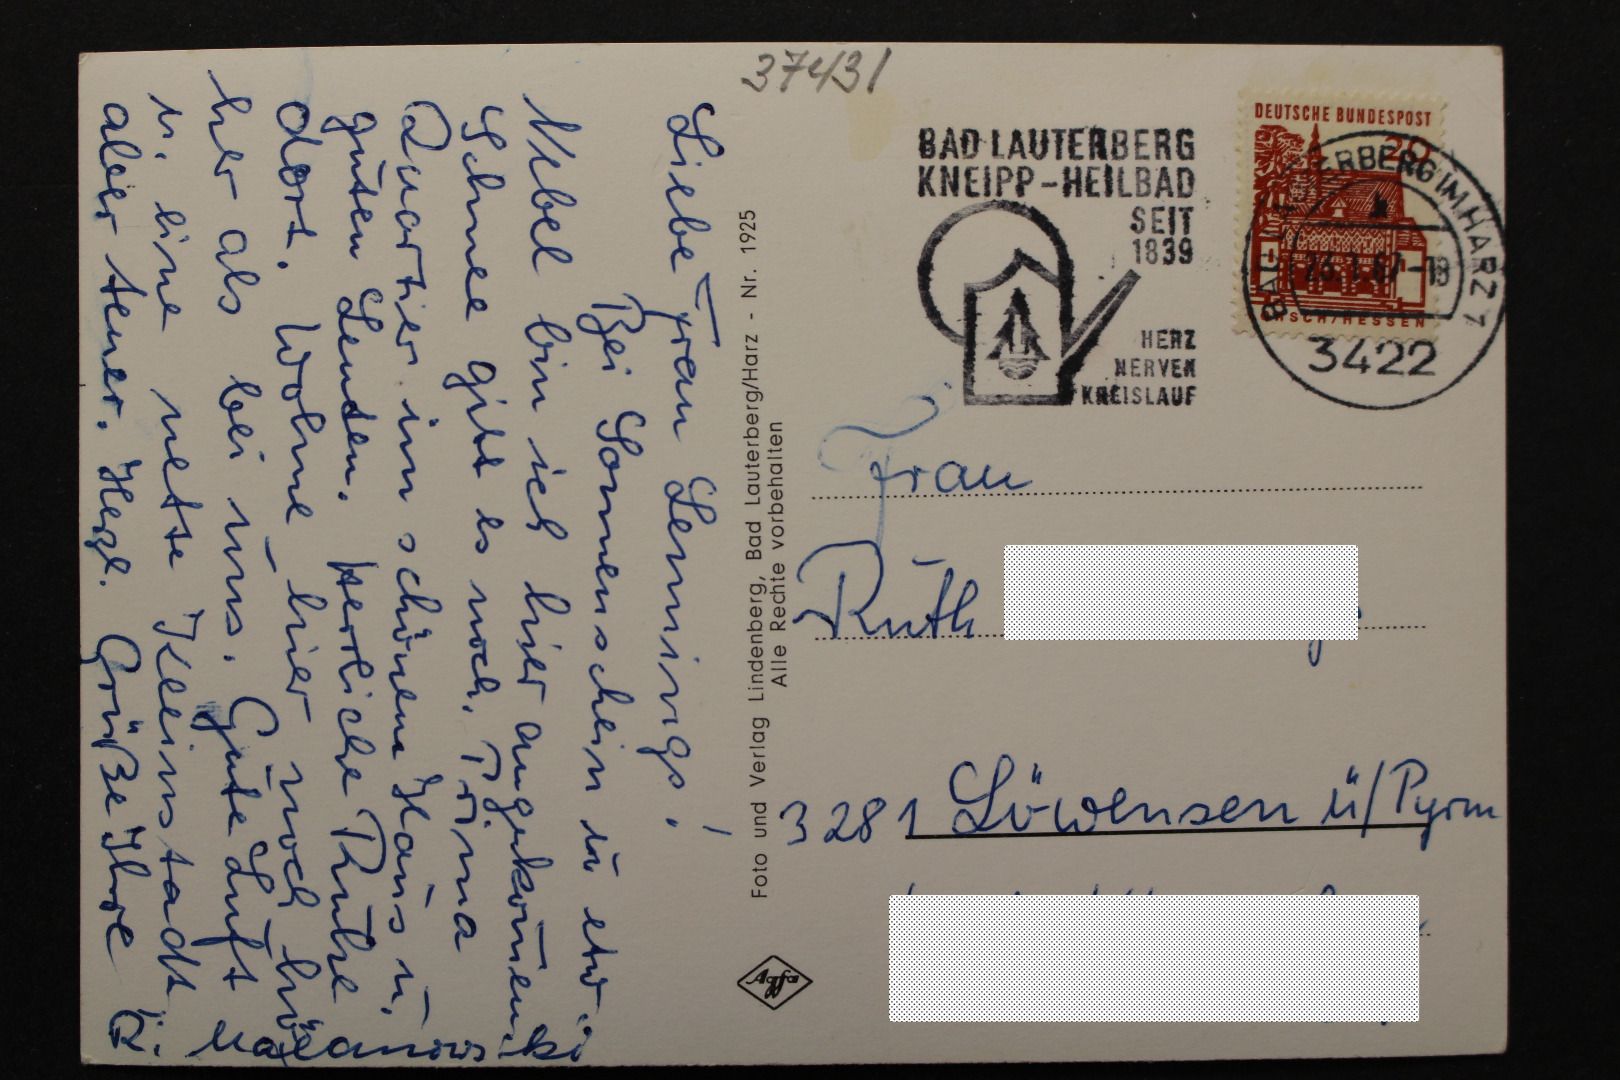 37431
BAD LAUTERBERG
KNEIPP-HEILBAD
SEIT
1839
HERZ
NERVEN
KREISLAUF
DEUTSCHE BUNDESPOST
20
LORSCH/HESSEN
BAD LAUTERBERG IM HARZ 1
26.1.67-18
3422
Liebe Frau Lennings!
Bei Sonnenschein u. etw.
Nebel bin ich hier angekommen.
Schnee gibt es noch. Prima
Quartier im schönen Haus u.
guten Leuten. Herrliche Ruhe
dort. Wohne hier noch hö
her als bei uns. Gute Luft
u. eine nette Kleinstadt,
aber teuer. Herzl. Grüße Ihre
R.
Foto und Verlag Lindenberg, Bad Lauterberg/Harz - Nr. 1925
Alle Rechte vorbehalten
Agfa
Frau
Ruth
3281 Löwensen ü/Pyrm